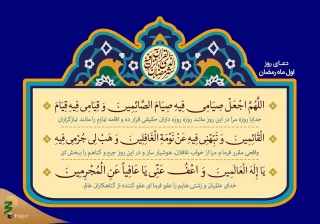 دعـای روز
اول ماه رمضان
اللَّهُمَّ اجْعَلْ صِیَامِی فِیهِ صِیَامَ الصَّائِمِینَ وَ قِیَامِی فِیهِ قِیَامَ
خدایا روزه مرا در این روز مانند روزه روزه داران حقیقی قرار ده و اقامه نمازم را مانند نمازگزاران
الْقَائِمِینَ وَ نَبِّهْنِی فِیهِ عَنْ نَوْمَةِ الْغَافِلِینَ وَ هَبْ لِی جُرْمِی فِیهِ
واقعی مقرر فرما و مرا از خواب غافلان هوشیار ساز و در این روز جرم و گناهم را ببخش ای
یَا إِلَهَ الْعَالَمِینَ وَ اعْفُ عَنِّی یَا عَافِیاً عَنِ الْمُجْرِمِینَ
خدای عالمیان و زشتی هایم را عفو فرما ای عفو کننده از گناهکاران عالم
Hajij.ir